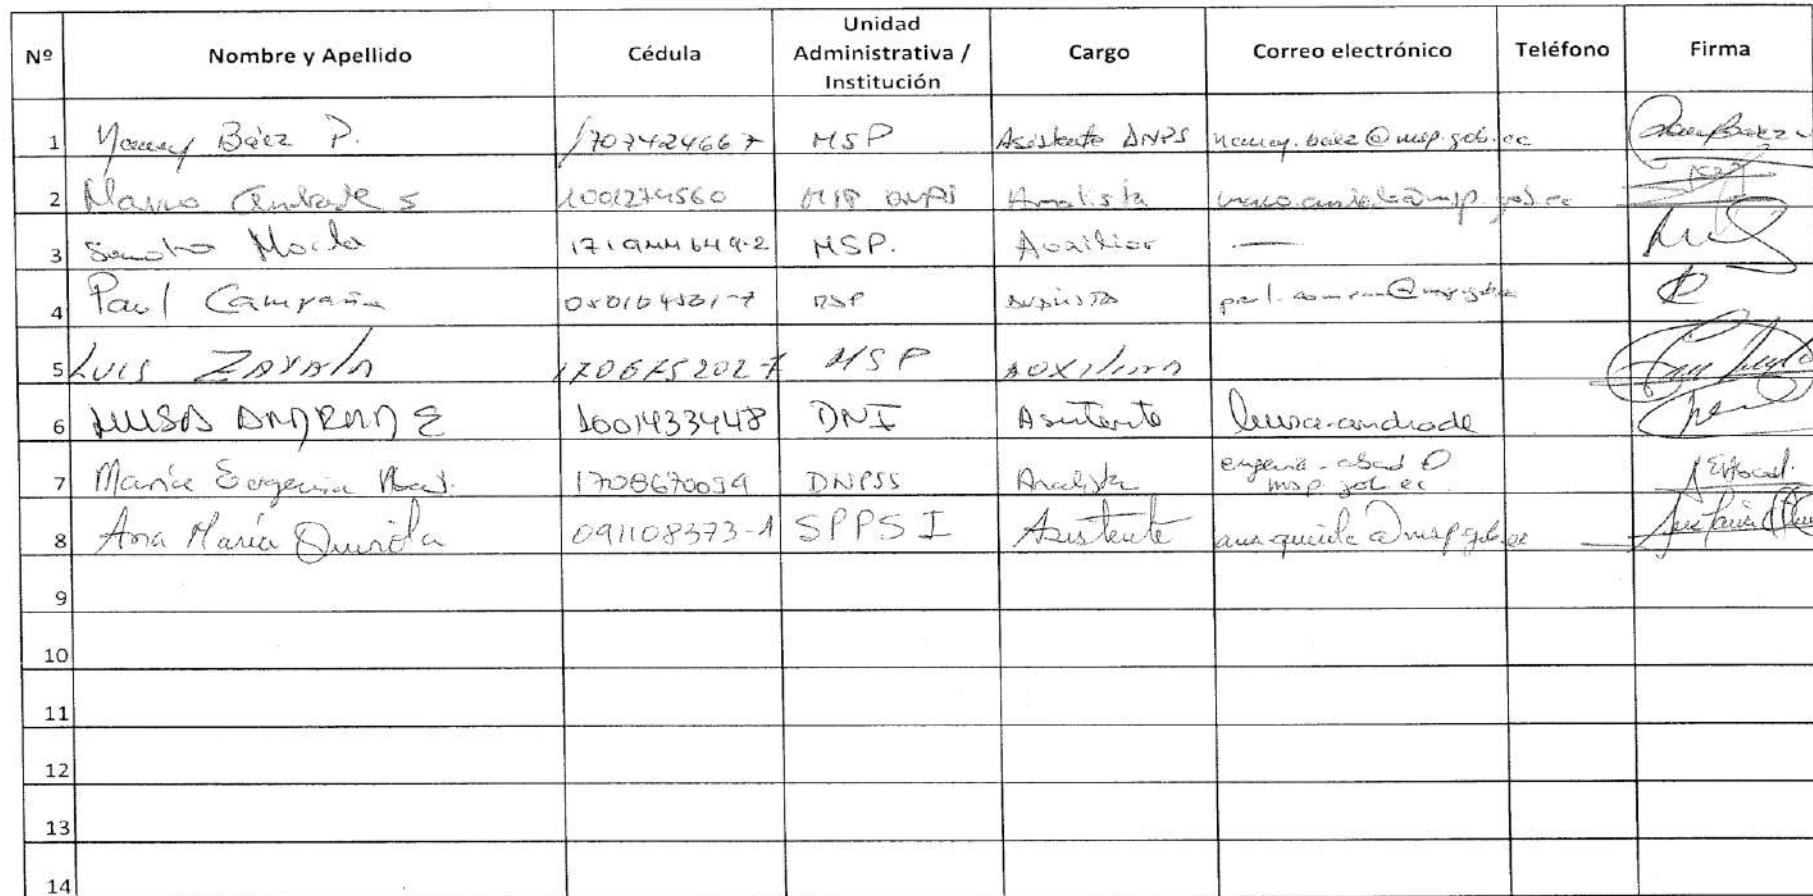 Nº Nombre y Apellido Cédula Unidad Administrativa / Institución Cargo Correo electrónico Teléfono Firma
1 Nancy Báez P. 1707424667 MSP Asistente DNPS nancy.baez@msp.gob.ec
2 Marco Andrade S 1001274560 MSP Analista
3 Mocla MSP. Auxiliar —
4 Paul Campaña MSP
5 LUIS ZAVALA 170675202-7 MSP AUXILIAR
6 LUISA ANDRADE 1001433448 DNI Asistente luisa.andrade
7 María Eugenia Abad. 1708670094 DNPSS Analista eugenia.abad@
msp.gob.ec
8 Ana María Quirola 091108373-1 SPPSI Asistente ana.quirola@msp.gob.ec
9
10
11
12
13
14